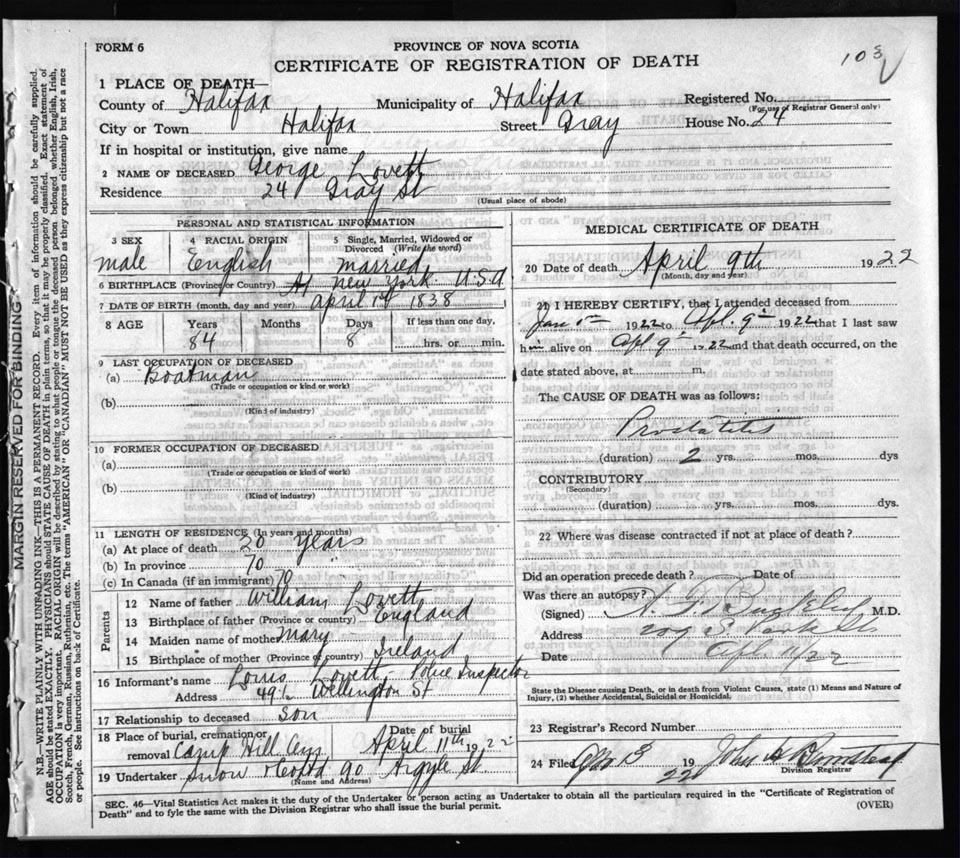 FORM 6
PROVINCE OF NOVA SCOTIA
CERTIFICATE OF REGISTRATION OF DEATH
103
1 PLACE OF DEATH—
County of Halifax Municipality of Halifax Registered No.
(For use of Registrar General only)
City or Town Halifax Street Gray House No. 24
If in hospital or institution, give name
2 NAME OF DECEASED George Lovett
Residence 24 Gray St
(Usual place of abode)
PERSONAL AND STATISTICAL INFORMATION
3 SEX 4 RACIAL ORIGIN 5 Single, Married, Widowed or Divorced (Write the word)
male English married
6 BIRTHPLACE (Province or Country) At New York U.S.A
7 DATE OF BIRTH (month, day and year) April 1st 1838
8 AGE Years Months Days If less than one day,
84 8 hrs. or min.
9 LAST OCCUPATION OF DECEASED
(a) Boatman
(Trade or occupation or kind of work)
(b)
(Kind of industry)
10 FORMER OCCUPATION OF DECEASED
(a)
(Trade or occupation or kind of work)
(b)
(Kind of industry)
11 LENGTH OF RESIDENCE (In years and months)
(a) At place of death 20 years
(b) In province 70 "
(c) In Canada (if an immigrant) 70
Parents
12 Name of father William Lovett
13 Birthplace of father (Province or country) England
14 Maiden name of mother Mary
15 Birthplace of mother (Province or country) Ireland
16 Informant's name Louis Lovett Police Inspector
Address 49½ Wellington St
17 Relationship to deceased son
18 Place of burial, cremation or removal Camp Hill Date of burial April 11th 1922
19 Undertaker Snow & Co Ltd 90 Argyle St.
(Name and Address)
MEDICAL CERTIFICATE OF DEATH
20 Date of death April 9th 1922
(Month, day and year)
21 I HEREBY CERTIFY, that I attended deceased from
Jan 1922 to Apl. 9th 1922 that I last saw
him alive on Apl 9th 1922 and that death occurred, on the
date stated above, at m.
The CAUSE OF DEATH was as follows:
Prostatitis
(duration) 2 yrs. mos. dys
CONTRIBUTORY
(Secondary)
(duration) yrs. mos. dys.
22 Where was disease contracted if not at place of death?
Did an operation precede death? Date of
Was there an autopsy?
(Signed) M.D.
Address
Date Apl 11/22
State the Disease causing Death, or in death from Violent Causes, state (1) Means and Nature of Injury, (2) whether Accidental, Suicidal or Homicidal.
23 Registrar's Record Number
24 Filed 19 22 John
Division Registrar
SEC. 46—Vital Statistics Act makes it the duty of the Undertaker or person acting as Undertaker to obtain all the particulars required in the "Certificate of Registration of
Death" and to fyle the same with the Division Registrar who shall issue the burial permit.
(OVER)
MARGIN RESERVED FOR BINDING
N.B.—WRITE PLAINLY WITH UNFADING INK—THIS IS A PERMANENT RECORD. Every item of information should be carefully supplied.
AGE should be stated EXACTLY. PHYSICIANS should STATE CAUSE OF DEATH in plain terms, so that it may be properly classified. Exact statement of
OCCUPATION is very important. RACIAL ORIGIN will be described by stating to what people or tongue the deceased person belonged whether English, Irish,
Scotch, French, German, Russian, Ruthenian, etc. The terms "AMERICAN" OR "CANADIAN" MUST NOT BE USED as they express citizenship but not a race
or people. See instructions on back of Certificate.